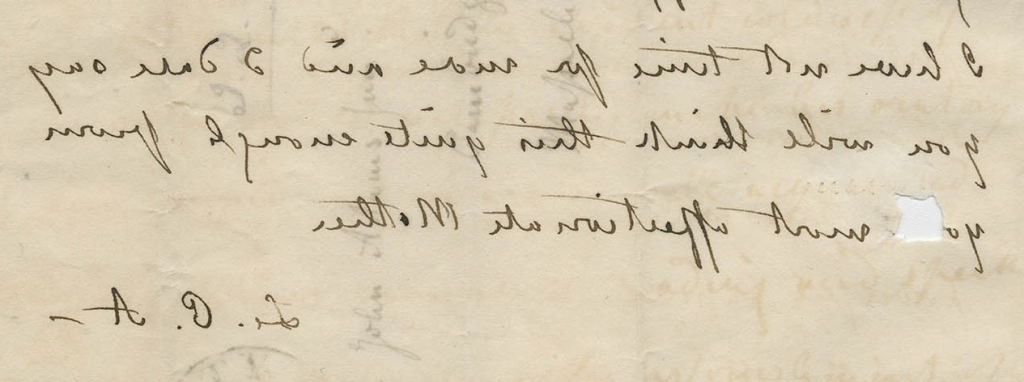 I have not time for more and I dare say
you will think this quite enough from
yo most affectionate Mother
L. C. A —